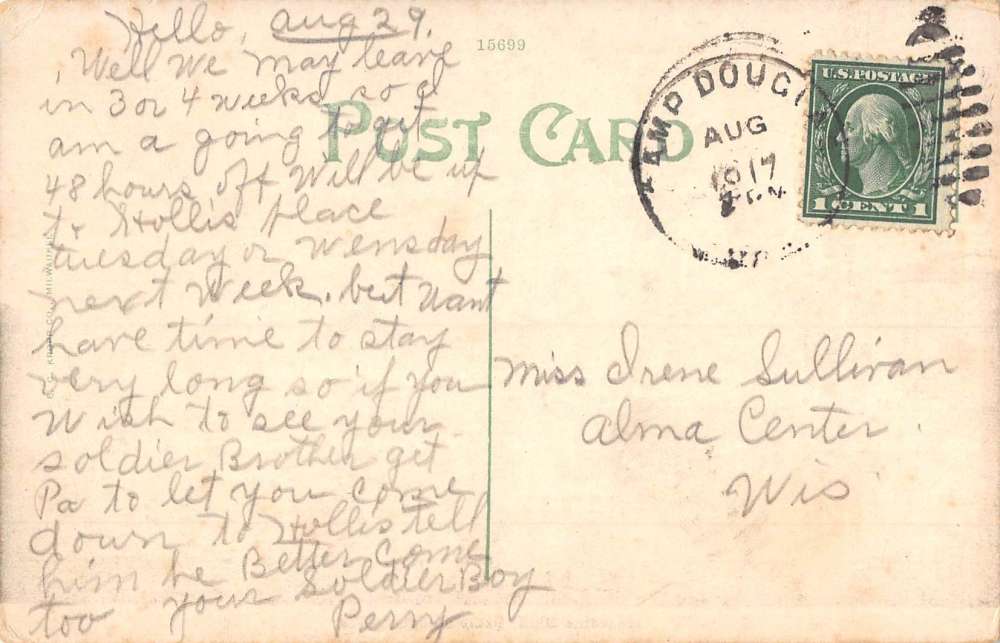 Hello, Aug 29,
Well we may leave
in 3 or 4 weeks so I
am a going to get
48 hours off Will be up
to Hollis place
tuesday or Wensday
next Week. but Wont
have time to stay
very long so if you
Wish to see your
soldier Brother get
Pa to let you come
down to Hollis tell
him he Better Come
too your Soldier Boy
Perry
15699
POST CARD
AMP DOUGL
AUG
1917
U.S. POSTAGE
1 CENT 1
Miss Irene Sullivan
Alma Center.
Wis